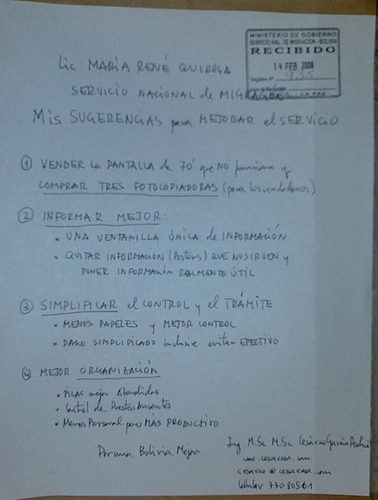 MINISTERIO DE GOBIERNO
SERVICIO NAL. DE MIGRACION - BOLIVIA
RECIBIDO
14 FEB. 2008
935
Lic MARIA RENÉ QUIROGA
SERVICIO NACIONAL de MIGRACION
Mis SUGERENCIAS para MEJORAR el SERVICIO
① VENDER la PANTALLA de 70' que NO funciona y
COMPRAR TRES FOTOCOPIADORAS (para los ciudadanos)
② INFORMAR MEJOR:
• UNA VENTANILLA ÚNICA de INFORMACIÓN
• QUITAR INFORMACION (Posters) QUE NO SIRVEN y
PONER INFORMACIÓN REALMENTE ÚTIL
③ SIMPLIFICAR el CONTROL y el TRÁMITE
• MENOS PAPELES y MEJOR CONTROL
• PAGO SIMPLIFICADO inclusive evitar EFECTIVO
④ MEJOR ORGANIZACIÓN
• FILAS mejor
• Control de Puestos Ausentes
• Menos Personal pero MAS PRODUCTIVO
Por una Bolivia Mejor
Ing. M.Sc M.Sc Cesáreo García
www.cesarea.com
Celular 73080561